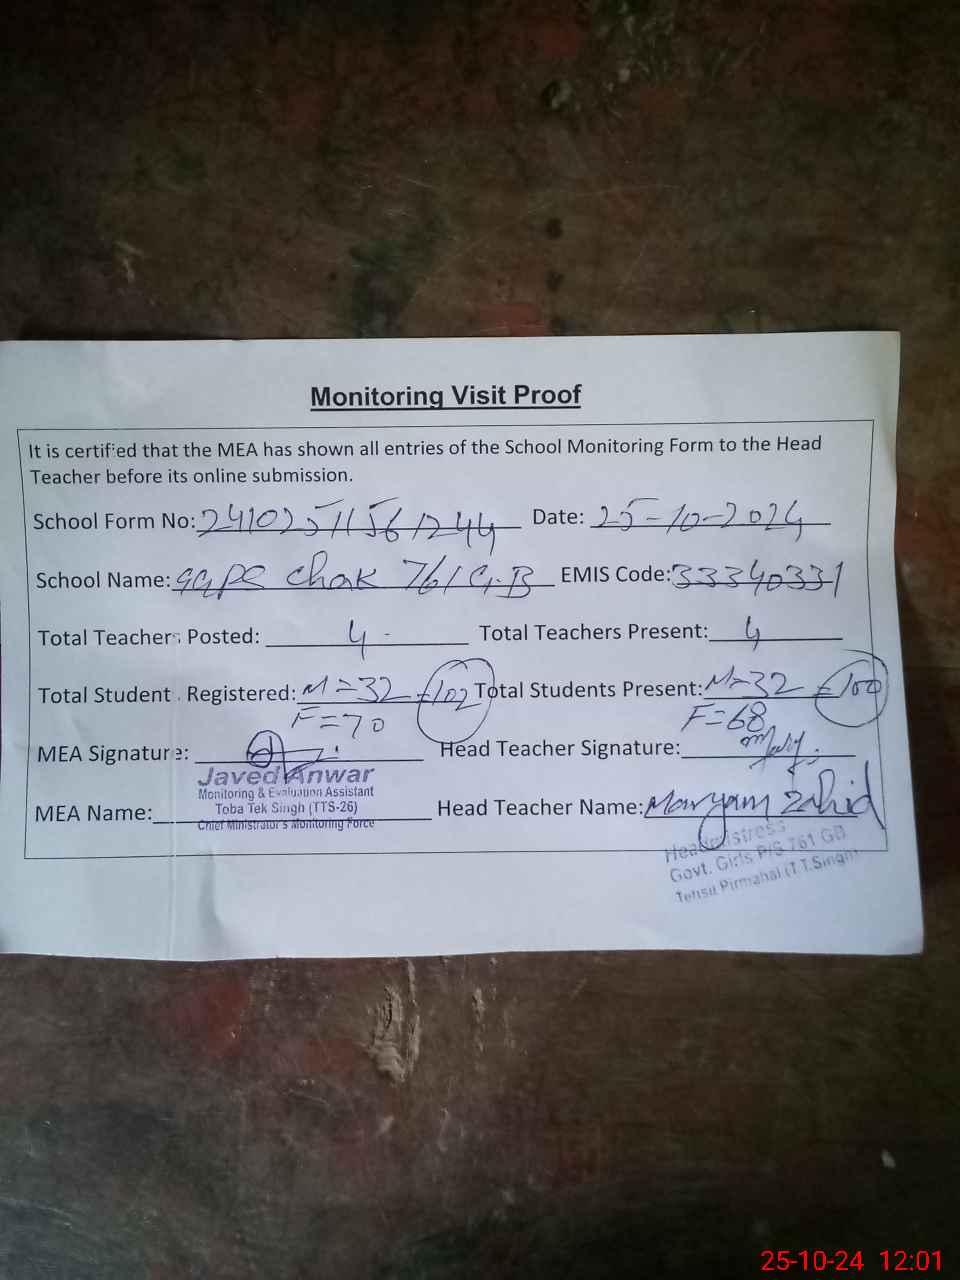 Monitoring Visit Proof
It is certified that the MEA has shown all entries of the School Monitoring Form to the Head
Teacher before its online submission.
School Form No: 24102511561244 Date: 25-10-2024
School Name: GGPS Chak 761 G.B EMIS Code: 33340331
Total Teachers Posted: 4 - Total Teachers Present: 4
Total Student Registered: M=32 =102 Total Students Present: M=32 =100
F=70 F=68
MEA Signature: Head Teacher Signature:
Javed Anwar
Monitoring & Evaluation Assistant
Toba Tek Singh (TTS-26)
MEA Name: Head Teacher Name: Maryam Zahid
Chief Ministrator's Monitoring Force
Headmistress
Govt. Girls P/S 761 GB
Tehsil Pirmahal (T.T.Singh)
25-10-24 12:01